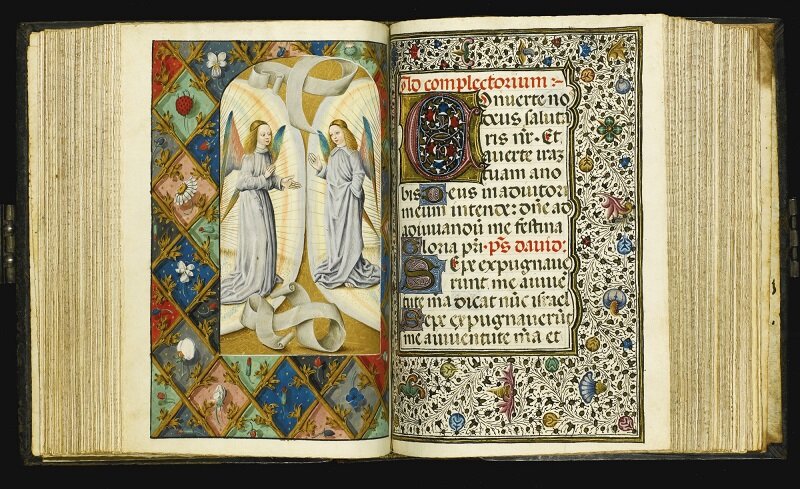 Ad complectorium :-
Conuerte no
deus saluta
ris nr̄. Et
auerte iraz
tuam ano
bis Deus in adiutori
meum intende: dn̄e ad
adiuuandū me festina
Gloria pri. ps̄ dauid:
Sepe expugnaue
runt me a iuue
tute mā dicat nūc israel
Sepe expugnauerūt
me a iuuentute m̄a et